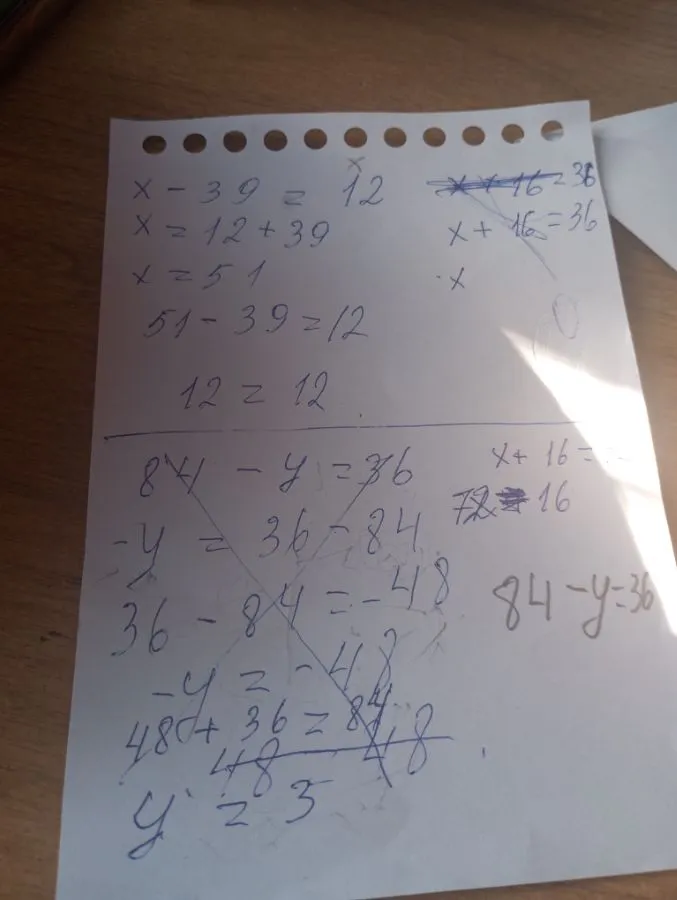 x - 39 = 12
x = 12 + 39
x = 51
51 - 39 = 12
12 = 12
x + 16 = 36
x + 16 = 36
x
84 - y = 36
-y = 36 - 84
36 - 84 = -48
-y = -48
48 + 36 = 84
48 48
y = 3
x + 16 =
16
84 - y = 36